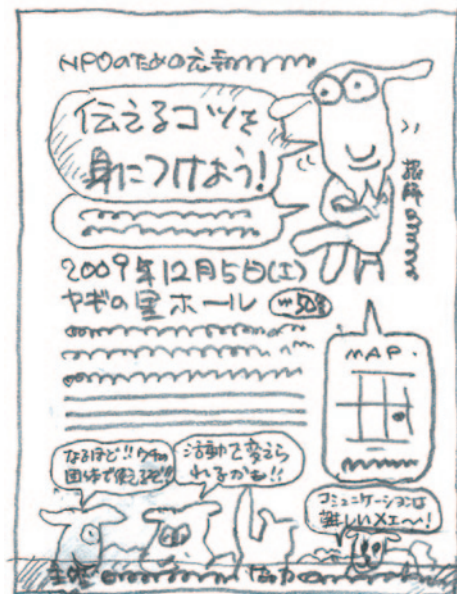 NPOのための広報
伝えるコツを
身につけよう!
2009年12月5日(土)
ヤギの里ホール 50名
講師
MAP.
なるほど!!ウチの
団体で使えるぞ!!
活動を変えら
れるかも!!
コミュニケーションは
難しいメェ〜!
主催 協力